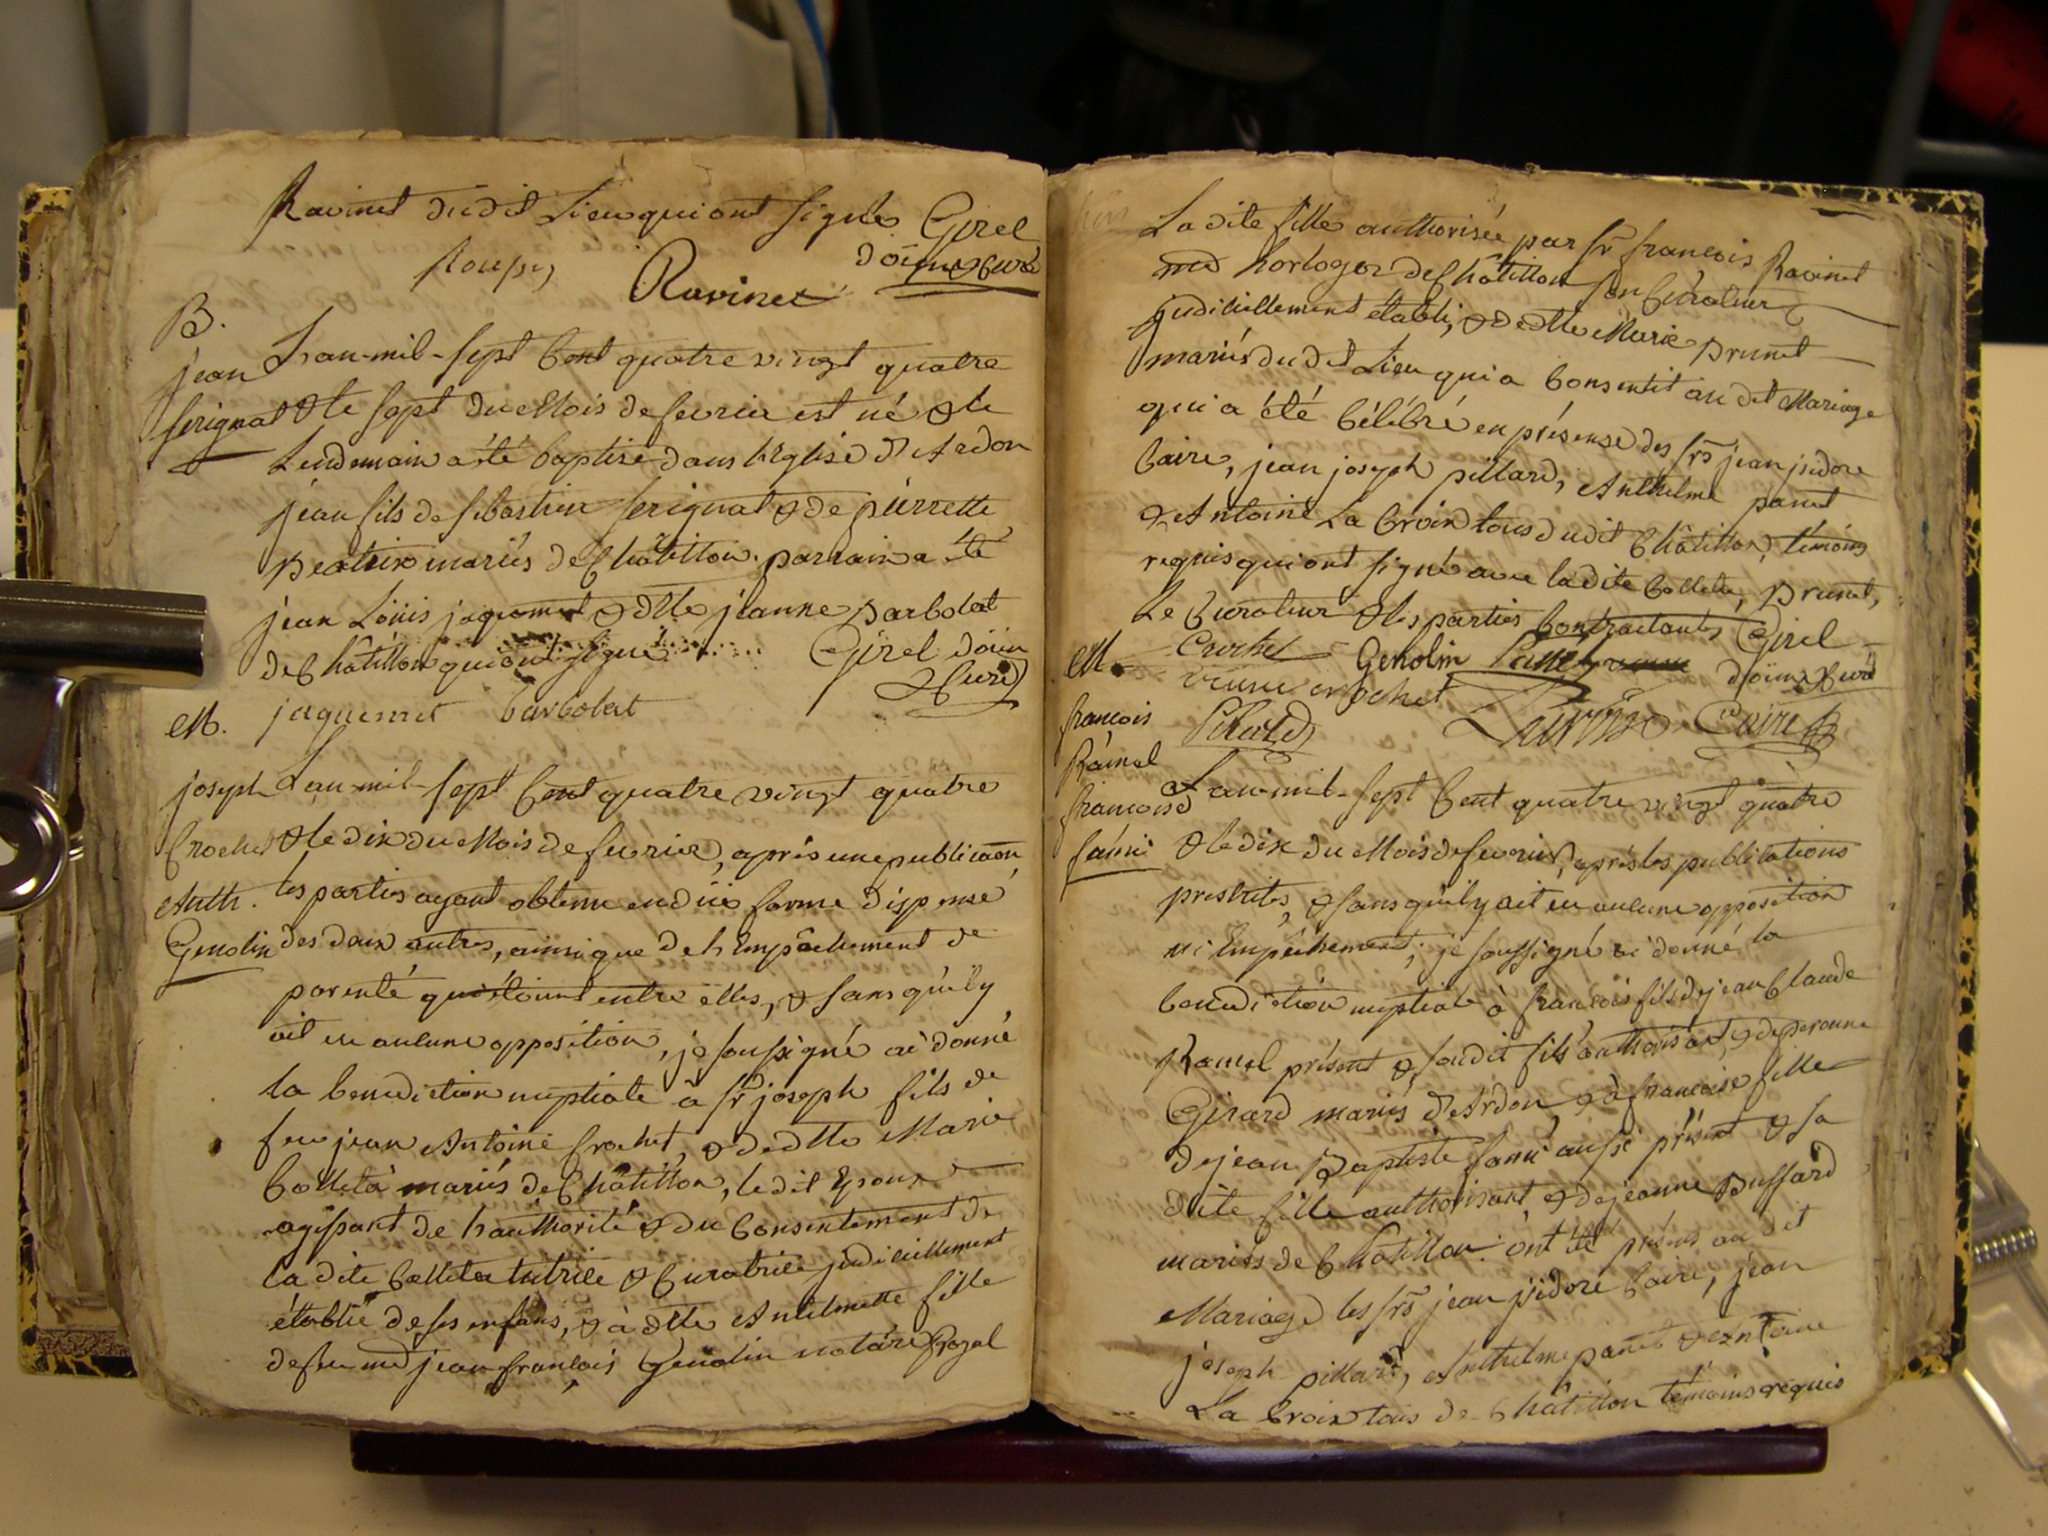 Ravinet dudit Lieu qui ont signés Girel
Roupy Ravinet doïen & curé
B.
jean
serignat
L'an mil-sept Cent quatre vingt quatre
& le sept du Mois de fevrier est né & le
Lendemain a été baptisé dans l'Eglise d'Ardon
jean fils de sebastien serignat & de pierrette
peatrix mariés de Châtillon. parrain a été
jean Loüis jaquemet & dlle jeanne parbolat
de Châtillon qui ont signé Girel doïen
& Curé
jaquemet barbolat
M.
joseph
Crochet
Anth.
Genolin
L'an-mil-sept Cent quatre vingt quatre
& le dix du Mois de fevrier, après une publicaon,
les parties ayant obtenu en düe forme dispense
des deux autres, ainsi que de l'Empêchement de
parenté qui étoient entre elles, & sans qu'il y
ait eu aucune opposition, je soussigné ai donné
la benediction nuptiale à sr joseph fils de
feu jean Antoine Crochet, & de dlle Marie
Colleta mariés de Châtillon, le dit Epoux
agissant de l'authorité & du Consentement de
la dite Colleta tutrice & Curatrice judiciellement
établie de ses enfans, & à dlle Anthelmette fille
de feu me jean françois Genolin notaire Royal
La dite fille authorisée par sr françois Ravinet
md horloger de Châtillon son Curateur
judiciellement établi, & de dlle Marie prunet
mariés du dit Lieu qui a Consentit au dit Mariage
qui a été Célébré en présense des srs jean jsidore
Caire, jean joseph pillard, Anthelme panet
& Antoine La Croix tous dudit Châtillon, témoins
requis qui ont signé avec la dite Colleta, prunet,
Le Curateur & les parties Contractantes Girel
doïen & curé
Crochet Genolin
veuve crochet
Pillard Caire
M.
françois
Ramel
françoise
famé
L'an-mil-sept Cent quatre vingt quatre
& le dix du Mois de fevrier, après les publications
prescrites, & sans qu'il y ait eu aucune opposition
ni Empêchement, je soussigné ai donné la
benediction nuptiale à françois fils de jean Claude
Ramel présent & son dit fils authorisant, & de peronne
Girard mariés d'Ardon, & à françoise fille
de jean Baptiste famé aussi présent & sa
dite fille authorisant, & de jeanne Buffard
mariés de Châtillon. ont été présens au dit
Mariage les srs jean jsidore Caire, jean
joseph pillard, Anthelme panet & Antoine
La Croix tous de Châtillon témoins requis